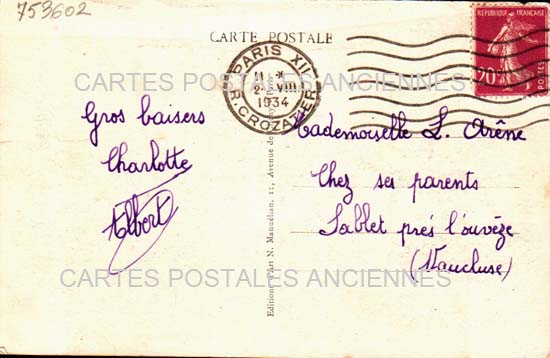 753602
CARTE POSTALE
PARIS XII
R. CROZATIER
2-VIII
1934
REPUBLIQUE FRANÇAISE
20c
CARTES POSTALES ANCIENNES
Gros baisers
Charlotte
Albert
Mademoiselle L. Arène
Chez ses parents
Sablet prés l'ouvèze
(Vaucluse)
Editions d'Art N. Manuélian, 11, Avenue de
CARTES POSTALES ANCIENNES